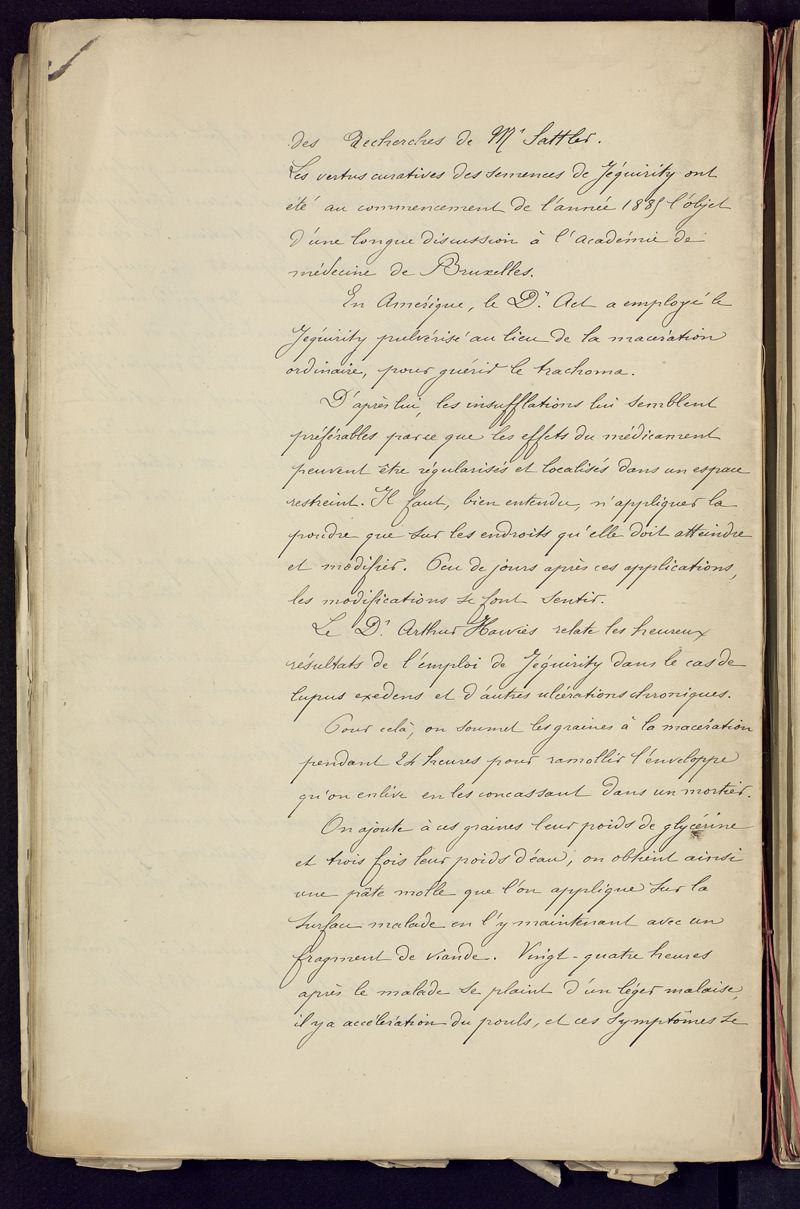 des Recherches de Mr Sattler.
Les vertus curatives des semences de Jéquirity ont
été au commencement de l'année 1885 l'objet
d'une longue discussion à l'Académie de
médecine de Bruxelles.
En Amérique, le Dr. Act a employé le
Jéquirity pulvérisé au lieu de la macération
ordinaire, pour guérir le trachoma.
D'après lui, les insufflations lui semblent
préférables parce que les effets du médicament
peuvent être régularisés et localisés dans un espace
restreint. Il faut, bien entendu, n'appliquer la
poudre que sur les endroits qu'elle doit atteindre
et modifier. Peu de jours après ces applications,
les modifications se font sentir.
Le Dr. Arthur Hawies relate les heureux
résultats de l'emploi de Jéquirity dans le cas de
lupus exedens et d'autres ulcérations chroniques.
Pour celà, on soumet les graines à la macération
pendant 24 heures pour ramollir l'enveloppe
qu'on enlève en les concassant dans un mortier.
On ajoute à ces graines leur poids de glycérine
et trois fois leur poids d'eau, on obtient ainsi
une pâte molle que l'on applique sur la
surface malade en l'y maintenant avec un
fragment de viande. Vingt-quatre heures
après le malade se plaint d'un léger malaise,
il y a accélération du pouls, et ces symptômes se